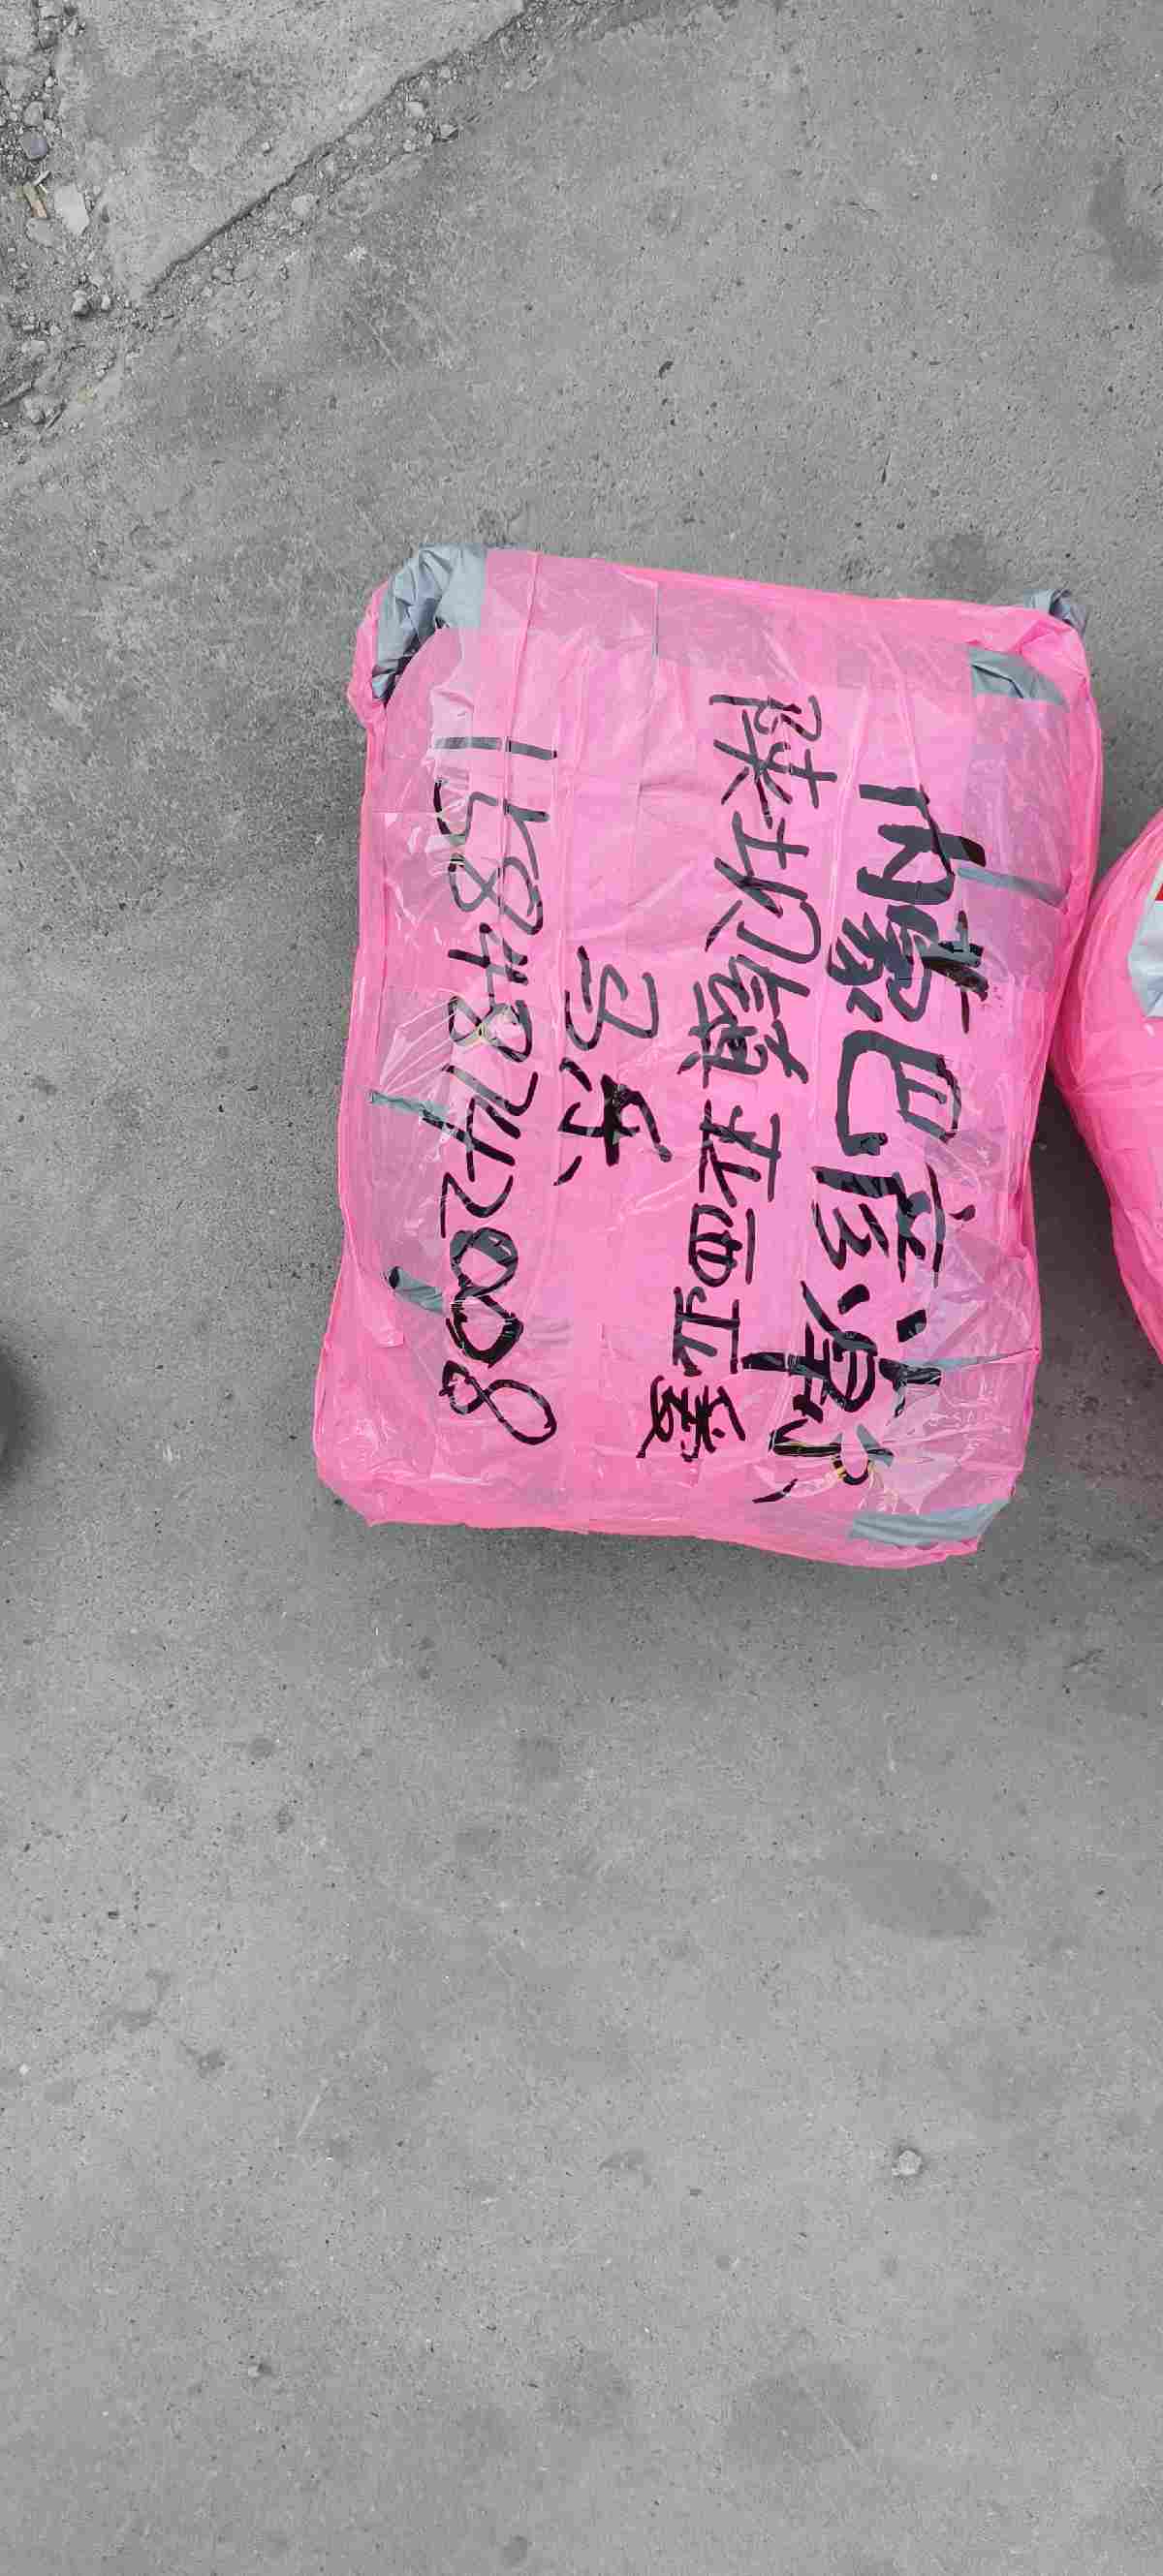 内蒙巴彦淖尔
陕坝镇亚西亚委
马乐
15848742008